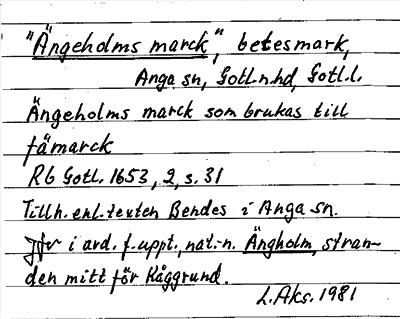 "Ängeholms marck", betesmark,
Anga sn, Gotl.n.hd, Gotl.l.
Ängeholms marck som brukas till
fämarck
Rb Gotl. 1653, 2, s. 31
Tillh. enl. texten Bendes i Anga sn.
Jfr i avd. f. uppt., nat.-n. Ängholm, stran-
den mitt för Kåggrund.
L.Aks. 1981